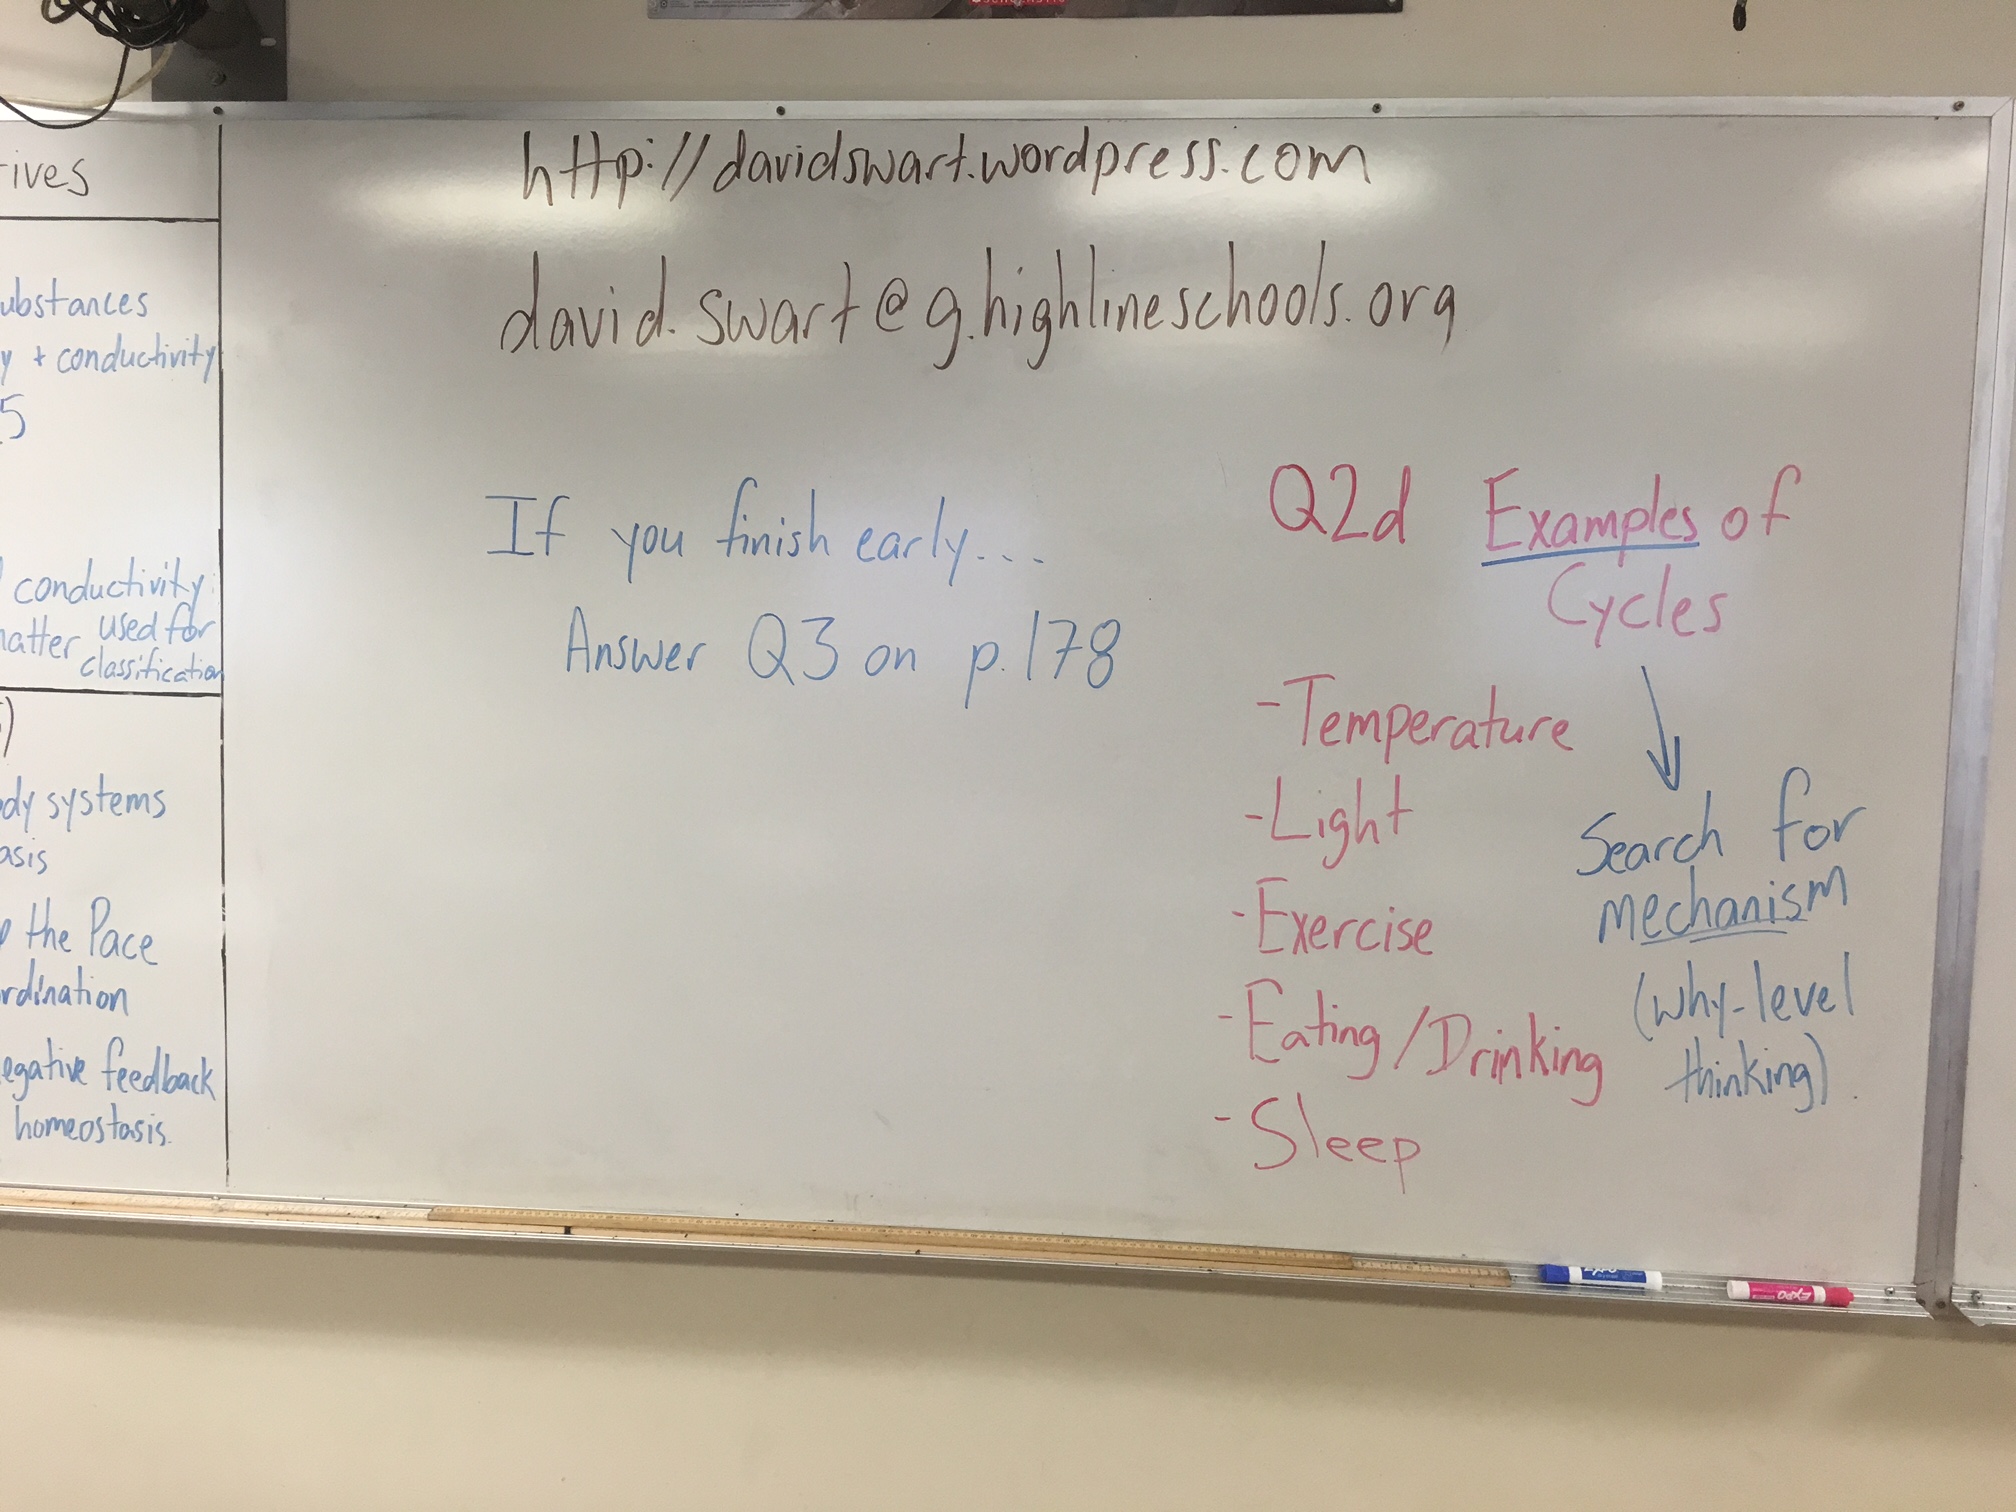 ives
ubstances
y + conductivity
5
conductivity:
matter used for
classification
dy systems
asis
the Pace
rdination
egative feedback
homeostasis.
http://davidswart.wordpress.com
david.swart@g.highlineschools.org
If you finish early...
Answer Q3 on p.178
Q2d Examples of
Cycles
-Temperature
-Light
-Exercise
-Eating/Drinking
-Sleep
Search for
mechanism
(why-level
thinking).
EXPO
EXPO